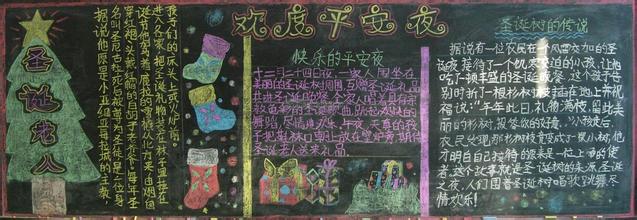 欢度平安夜
圣诞老人
据说他原是小亚细亚每拉城的主教,
名叫圣尼古拉死后被尊为圣徒是一位身
穿红袍头戴红帽的白胡子老头每年圣
诞夜他驾着鹿拉的雪橇从北方来由烟囱
进入各家,把圣诞礼物装在袜子里挂在
我们的床头上或火炉前。
快乐的平安夜
十二月二十四日夜,一家人围坐在
美丽的圣诞树周围,互赠圣诞礼品
共进圣诞
圣诞老人送来礼品
圣诞树的传说
据说有一位农民在一个风雪交加的圣
诞夜接待了一个饥寒交迫的小孩,让他
吃了顿丰盛的圣诞晚餐,这个孩子告
别时折了一根杉树枝插在地上并祝
福说:“年年此日,礼物满枝,留此美
丽的杉树,报答你的好意。”小孩走后,
农民发现那杉树枝竟变成了一棵小树,他
才明白自己接待的原来是一位上帝的使
者。这个故事就是圣诞树的来源圣诞
之夜,人们围着圣诞树唱歌跳舞尽
情欢乐!